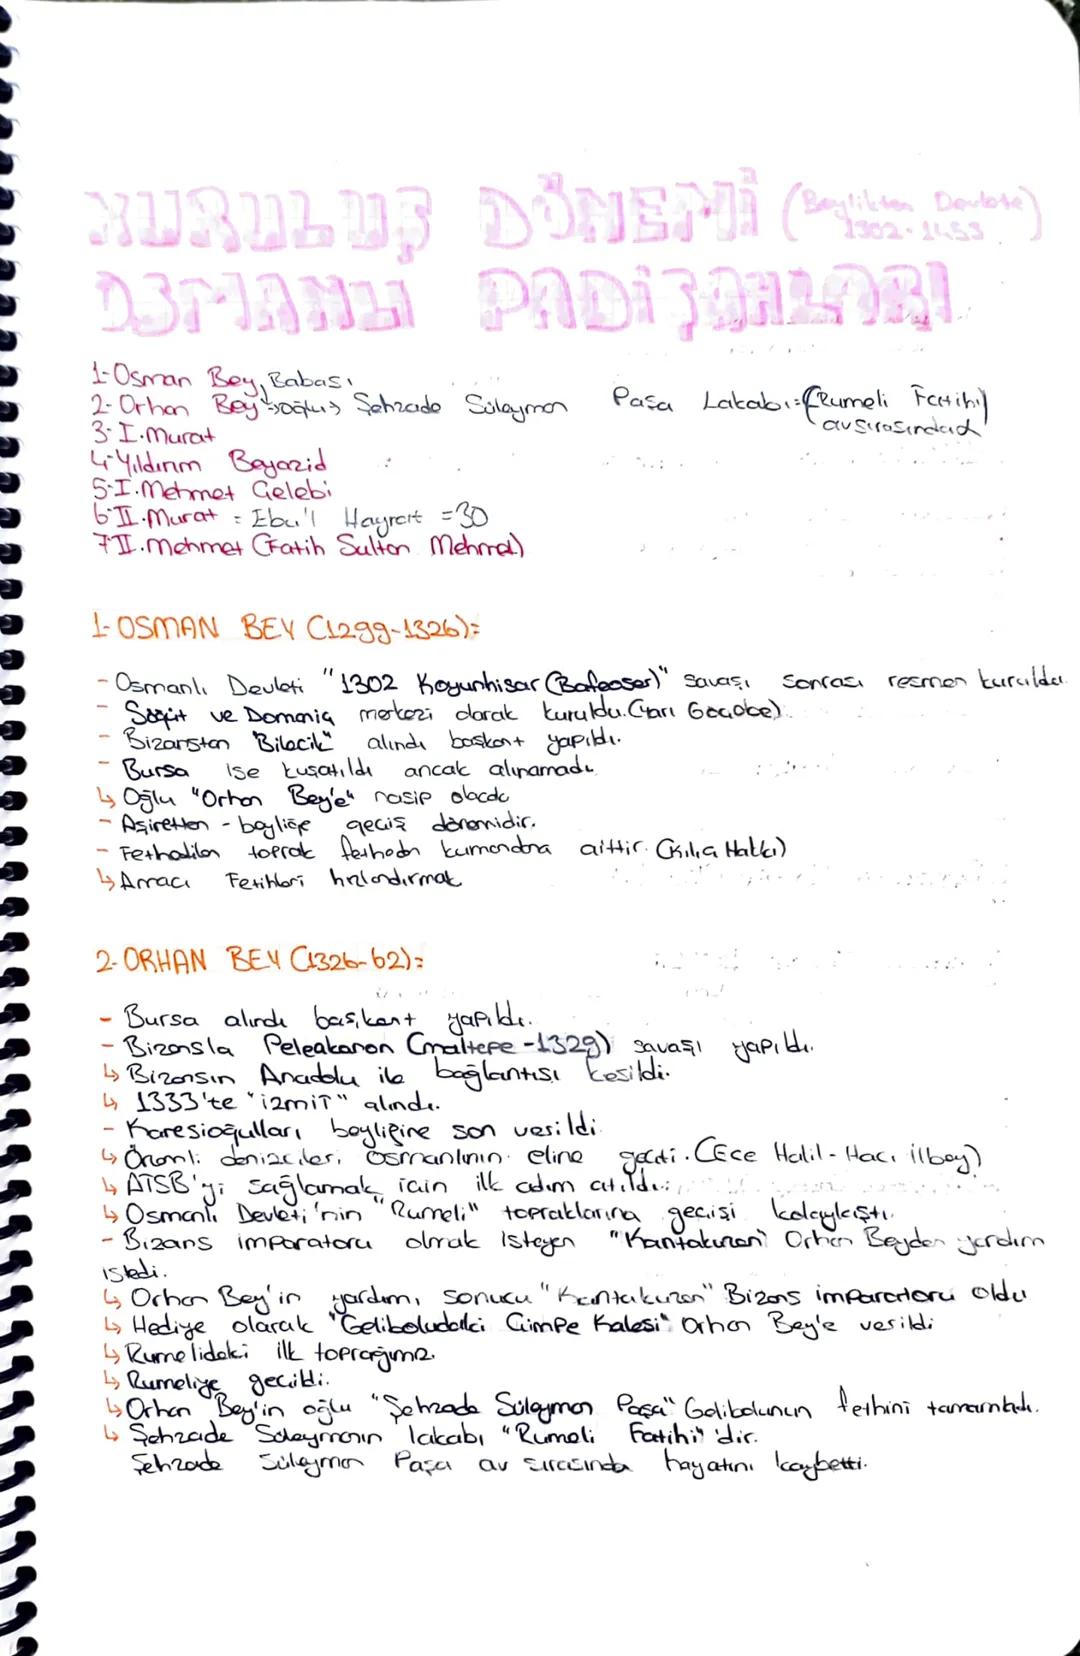 KURULUŞ DÖNEMİ (Beylikten Devlete)
1302-1453
OSMANLI PADİŞAHLARI
1-Osman Bey, Babası
2-Orhan Bey → oğlu → Şehzade Süleyman Paşa Lakabı = (Rumeli Fatihi)
av sırasında öl
3-I.Murat
4-Yıldırım Beyazid
5-I.Mehmet Çelebi
6-II.Murat = Ebu'l Hayrat = 30
7-II.Mehmet (Fatih Sultan Mehmet)
1-OSMAN BEY (1299-1326):
- Osmanlı Devleti "1302 Koyunhisar (Bafeaser)" savaşı sonrası resmen kuruldu.
- Söğüt ve Domaniç merkezi olarak kuruldu. (Yarı Göçebe)
- Bizanstan "Bilecik" alındı başkent yapıldı.
- Bursa ise kuşatıldı ancak alınamadı.
↳ Oğlu "Orhan Bey'e" nasip olacak
- Aşiretten - beyliğe geçiş dönemidir.
- Fethedilen toprak fetheden kumandana aittir. (Kılıç Hakkı)
↳ Amacı Fetihleri hızlandırmak
2-ORHAN BEY (1326-62):
- Bursa alındı başkent yapıldı.
- Bizansla Peleakanon (maltepe -1329) savaşı yapıldı.
↳ Bizansın Anadolu ile bağlantısı kesildi.
↳ 1333'te "izmit" alındı.
- Karesioğulları beyliğine son verildi.
↳ Önemli denizciler, Osmanlının eline geçti. (Ece Halil - Hacı ilbey)
↳ ATSB'yi sağlamak için ilk adım atıldı.
↳ Osmanlı Devleti'nin "Rumeli" topraklarına geçişi kolaylaştı.
- Bizans imparatoru olmak isteyen "Kantakuzen" Orhan Beyden yardım
istedi.
↳ Orhan Bey'in yardımı sonucu "Kantakuzen" Bizans imparatoru oldu
↳ Hediye olarak "Geliboludaki Çimpe Kalesi" Orhan Bey'e verildi
↳ Rumelideki ilk toprağımız.
↳ Rumeliye geçildi.
↳ Orhan Bey'in oğlu "Şehzade Süleyman Paşa" Gelibolunun fethini tamamladı.
↳ Şehzade Süleymanın lakabı "Rumeli Fatihi"'dir.
Şehzade Süleyman Paşa av sırasında hayatını kaybetti.